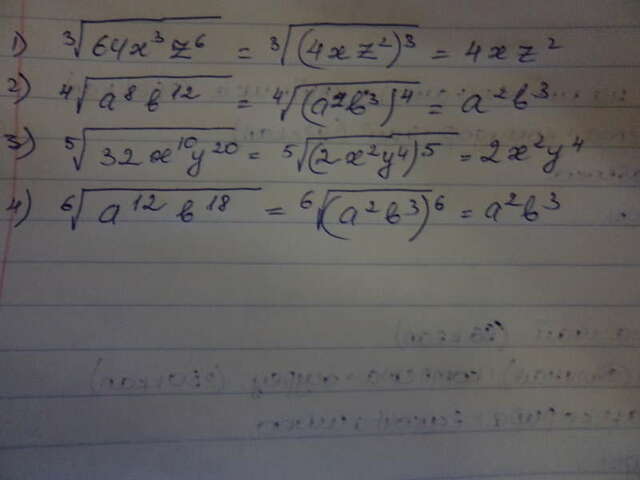 1) ∛(64x³z⁶) = ∛((4xz²)³) = 4xz²
2) ⁴√(a⁸b¹²) = ⁴√((a²b³)⁴) = a²b³
3) ⁵√(32x¹⁰y²⁰) = ⁵√((2x²y⁴)⁵) = 2x²y⁴
4) ⁶√(a¹²b¹⁸) = ⁶√((a²b³)⁶) = a²b³